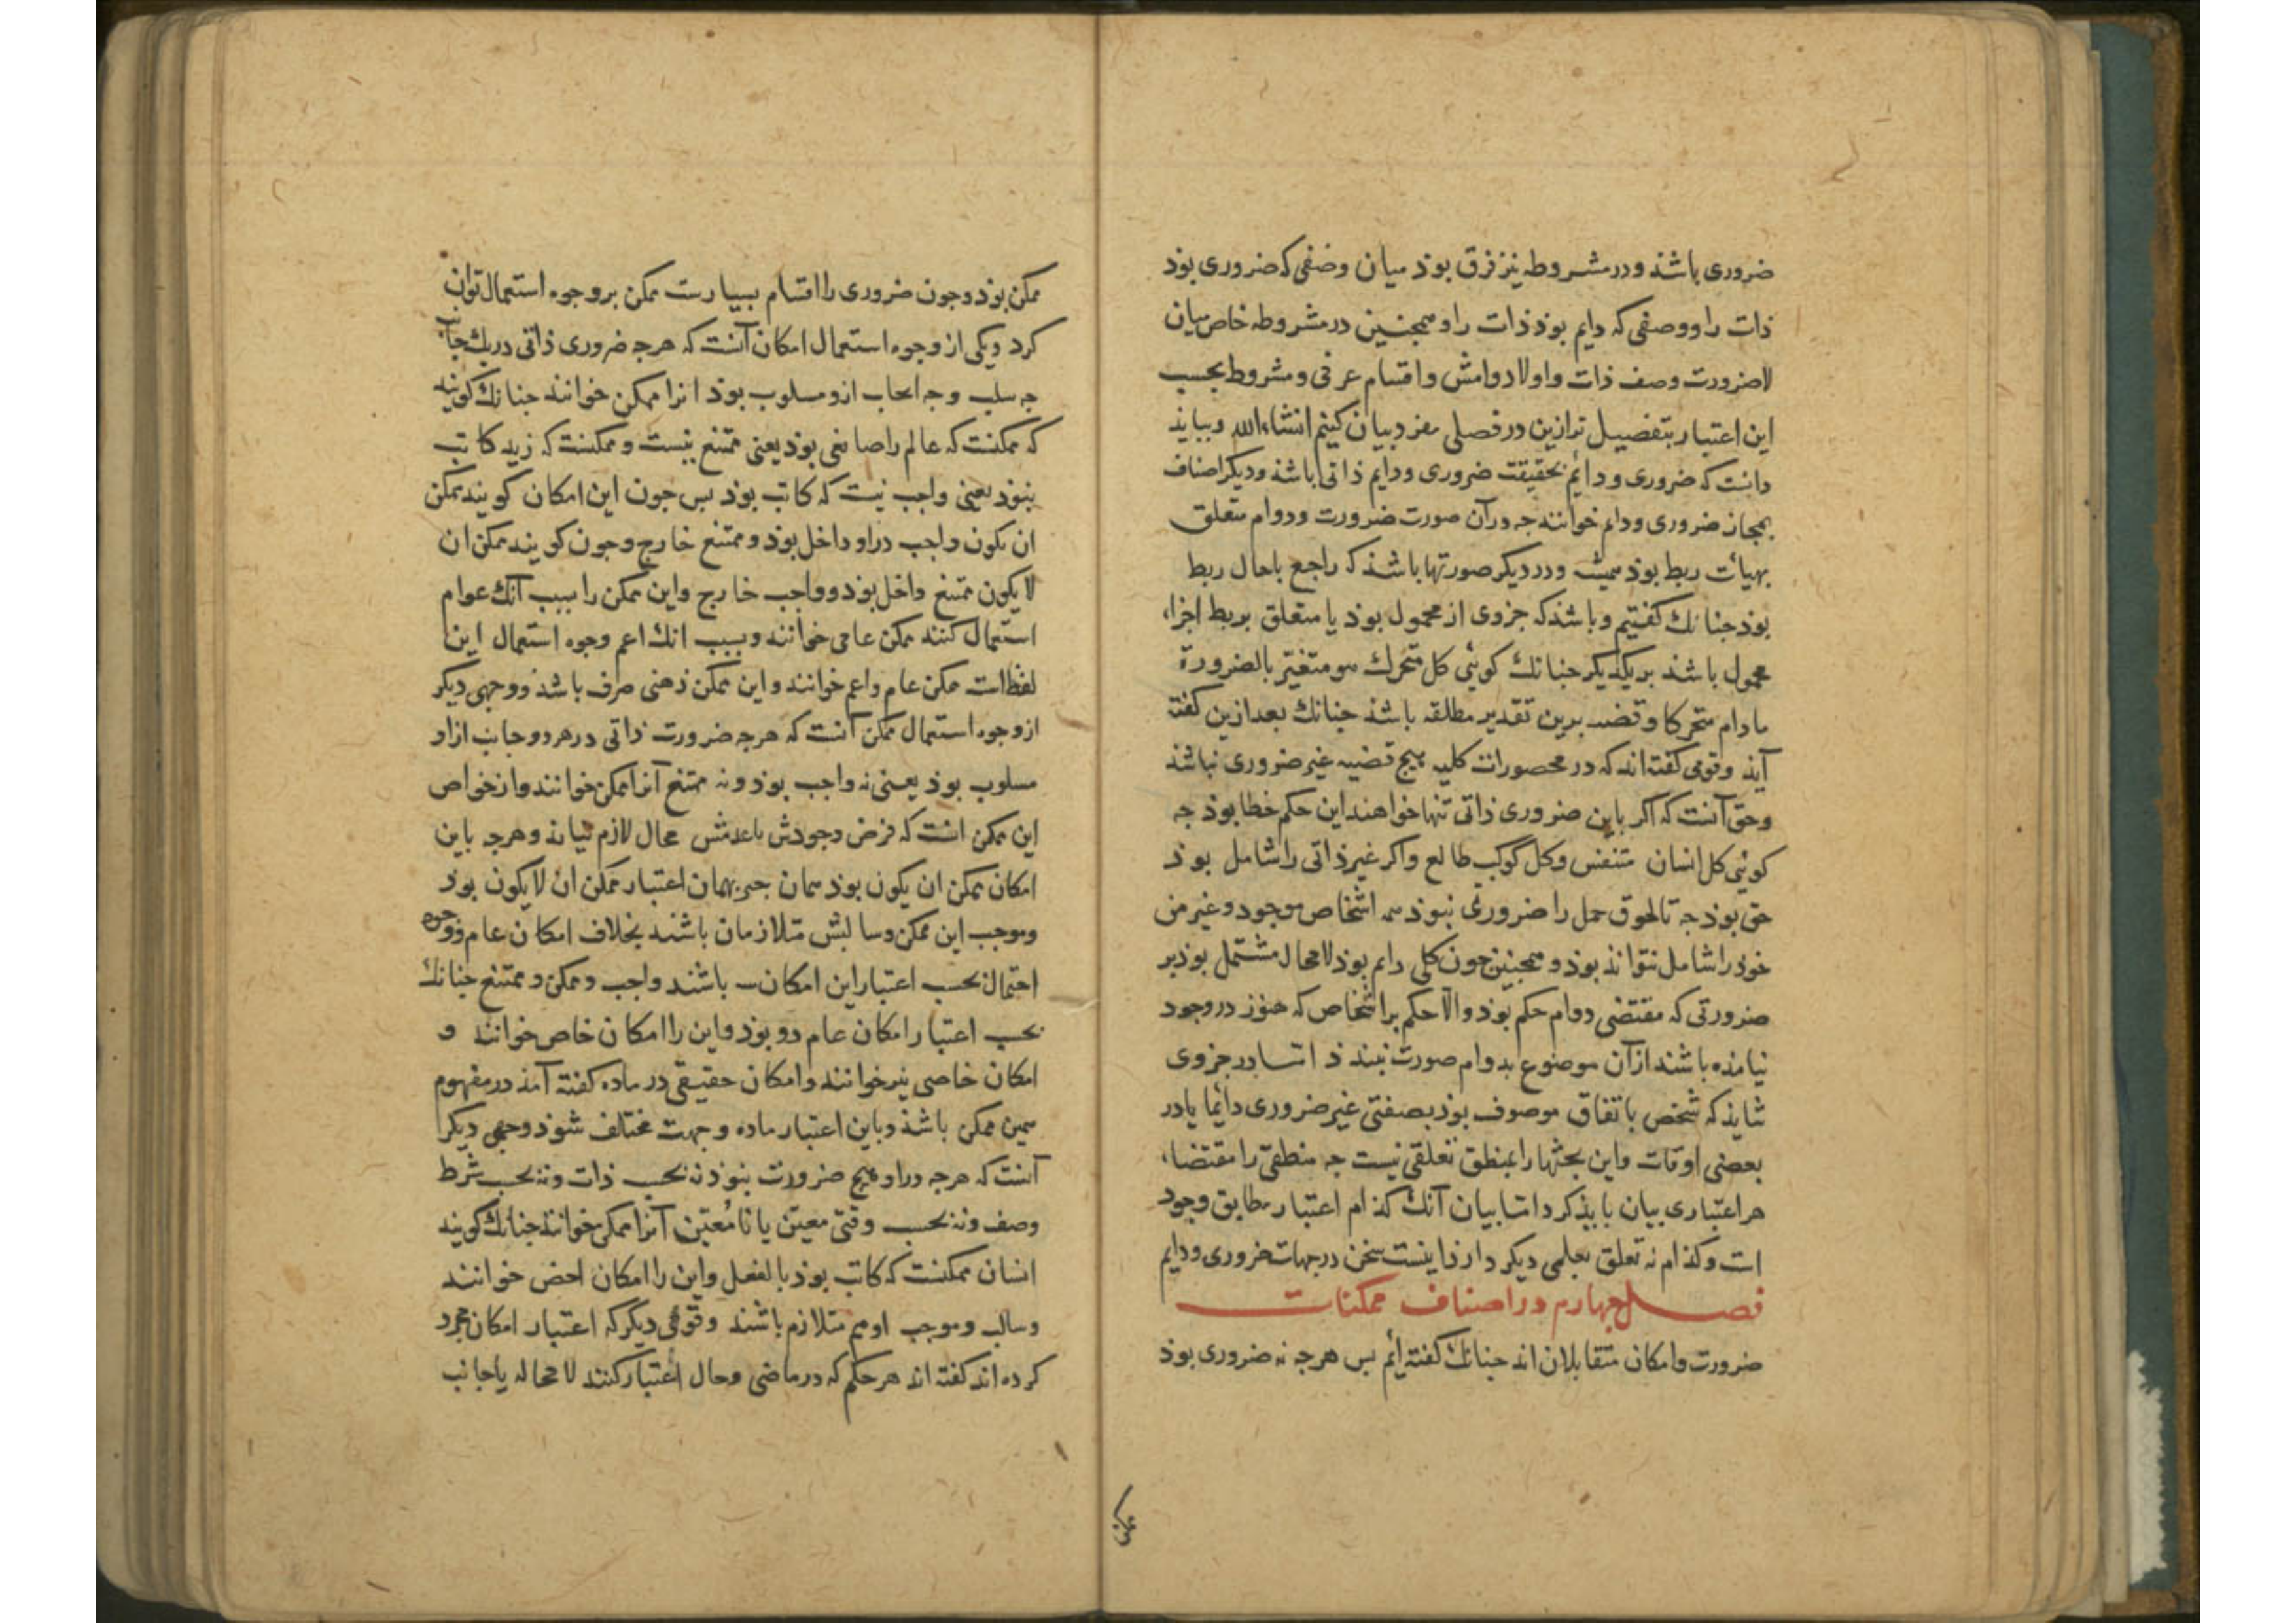 ضروری باشذ و در مشروطه نیز فرق بوذ میان وصفی که ضروری بوذ
ذات را و وصفی که دایم بوذ ذات را و همجنین در مشروطه خاص میان
لاضرورت وصف ذات را و لادوامش و اقسام عرفی و مشروط بحسب
این اعتبار بتفصیل تر ازین در فصلی مفرد بیان کنیم انشاءالله و ببایذ
دانست که ضروری و دائم بحقیقت ضروری و دایم ذاتی باشذ و دیکر اصناف
بمجاز ضروری و دایم خوانند جه در آن صورت ضرورت و دوام متعلق
بهیأت ربط بوذ همیشه و در دیکر صورتها باشذ که راجع باحال ربط
بوذ جنانك کفتیم و باشذ که جزوی از محمول بوذ یا متعلق بربط اجزاء
محمول باشذ بریکدیکر جنانك کوئی کل متحرك هو متغیر بالضرورة
مادام متحرکا و قضیه برین تقدیر مطلقه باشذ جنانك بعد ازین کفته
آیذ و قومی کفته‌اند که در محصورات کلیه هیج قضیه غیر ضروری نباشذ
و حق آنست که اکر باین ضروری ذاتی تنها خواهند این حکم خطا بوذ جه
کوئی کل انسان متنفس و کل کوکب طالع و اکر غیر ذاتی را شامل بوذ
حق بوذ جه تا لحوق حمل را ضرورتی نبوذ همه اشخاص موجود و غیر من
خوذ را شامل نتواند بوذ و همجنین جون کلی دایم بوذ لامحاله مشتمل بوذ بر
ضرورتی که مقتضی دوام حکم بوذ و الا حکم بر اشخاص که هنوز در وجود
نیامذه باشند از آن موضوع بدوام صورت نبندذ اما در جزوی
شایذ که شخص باتفاق موصوف بوذ بصفتی غیر ضروری دائما یا در
بعضی اوقات و این بحثها را بمنطق تعلقی نیست جه منطقی را مقتضاء
هر اعتباری بیان بایذ کرد اما بیان آنك کذام اعتبار مطابق وجود
است و کذام نه تعلق بعلمی دیکر دارذ اینست سخن در جهات ضروری و دایم
فصل جهارم در اصناف ممکنات
ضرورت و امکان متقابلان‌اند جنانك کفته‌ایم بس هرجه نه ضروری بوذ
ممکن بوذ و جون ضروری را اقسام بسیارست ممکن بر وجوه استعمال توان
کرد و یکی از وجوه استعمال امکان آنست که هرجه ضروری ذاتی در یك جانب
جه سلب و جه ایجاب ازو مسلوب بوذ انرا ممکن خوانند جنانك کویند
که ممکنست که عالم را صانعی بوذ یعنی ممتنع نیست و ممکنست که زید کاتب
نبوذ یعنی واجب نیست که کاتب بوذ بس جون این امکان کویند ممکن
ان یکون واجب در او داخل بوذ و ممتنع خارج و جون کویند ممکن ان
لا یکون ممتنع داخل بوذ و واجب خارج و این ممکن را بسبب آنك عوام
استعمال کنند ممکن عامی خوانند و بسبب انك اعم وجوه استعمال این
لفظ است ممکن عام و اعم خوانند و این ممکن ذهنی صرف باشذ و وجهی دیکر
از وجوه استعمال ممکن آنست که هرجه ضرورت ذاتی در هر دو جانب ازاو
مسلوب بوذ یعنی نه واجب بوذ و نه ممتنع آنرا ممکن خوانند و از خواص
این ممکن انست که فرض وجودش با عدمش محال لازم نیاید و هرجه باین
امکان ممکن ان یکون بوذ همان جیز بهمان اعتبار ممکن ان لا یکون بوذ
و موجب این ممکن و سالبش متلازمان باشند بخلاف امکان عام و وجوه
احتمال بحسب اعتبار این امکان سه باشند واجب و ممکن و ممتنع جنانك
بحسب اعتبار امکان عام دو بوذ و این را امکان خاص خوانند و
امکان خاصی نیز خوانند و امکان حقیقی در ماده کفته آمذ در مفهوم
همین ممکن باشذ و باین اعتبار ماده و جهت مختلف شوذ و وجهی دیکر
آنست که هرجه در او هیج ضرورت نبوذ نه بحسب ذات و نه بحسب شرط
وصف و نه بحسب وقتی معین یا نامعین آنرا ممکن خوانند جنانك کویند
انسان ممکنست که کاتب بوذ بالفعل و این را امکان اخص خوانند
و سالب و موجب او هم متلازم باشند و قومی دیکر که اعتبار امکان مجرد
کرده‌اند کفته‌اند هر حکم که در ماضی و حال اعتبار کنند لامحاله یا جانب